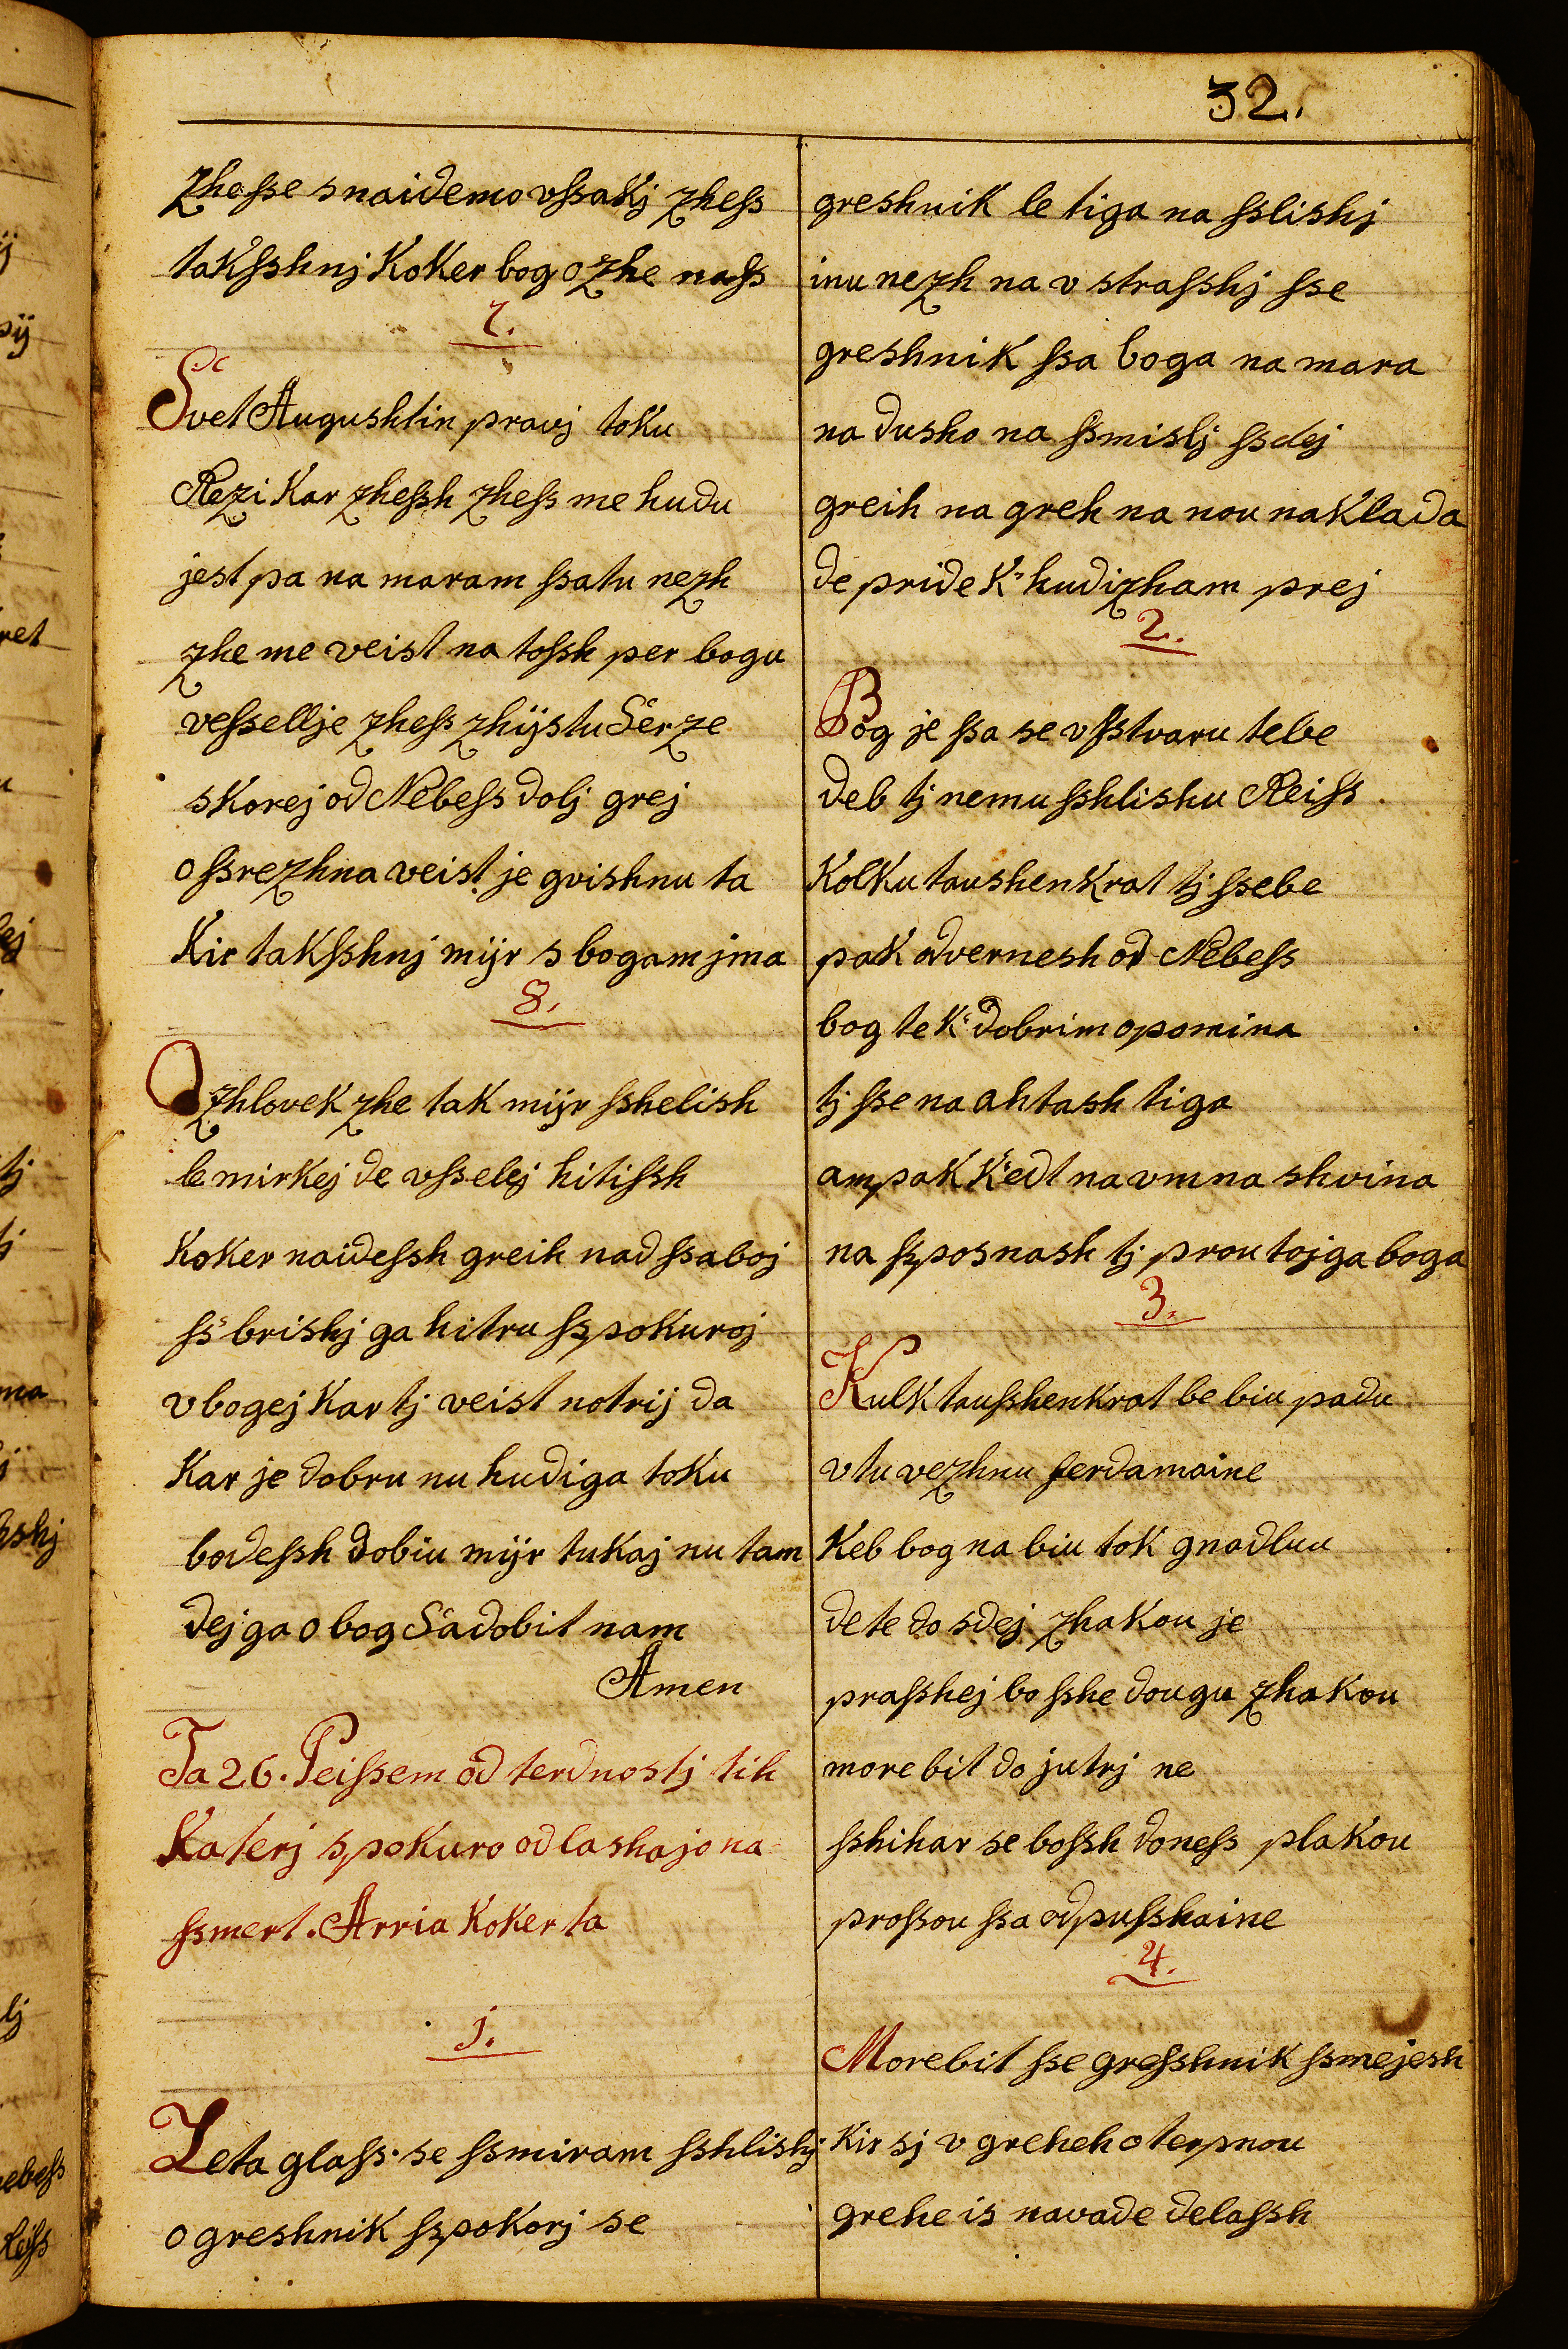 32.
zhesse snaidemo vssakj zhess
taksshnj Koker bog ozhe nass
7.
Svet Augushtin pravj toku
Rezi kar zhessh zhess me hudu
jest pa na maram ssatu nezh
zhe me veist na tossh per bogu
vessellje zhess zhijstu Serze
skorej od Nebess dolj grej
ossrezhna veist je gvishnu ta
Kir taksshnj mijr s bogam jma
8.
O zhlovek zhe tak mijr sshelish
le mirkej de vsselej hitissh
Koker naidessh greih nad ssaboj
ss brishj ga hitru sspokuroj
vbogej kar tj veist notrij da
Kar je dobru nu hudiga toku
bodessh dobiu mijr tukaj nu tam
dej ga o bog Sadobit nam
Amen
Ta 26. Peissem od terdnostj tih
Katerj spokuro odlashajo na
ssmert. Arria Koker ta
j.
Leta glass se ssmiram sshlishj
o greshnik sspokorj se
greshnik le tiga na sslishj
inu nezh na v strasshj sse
greshnik ssa boga na mara
na dusho na ssmislj ssdej
greih na greh na nou naklada
de pride k' hudizham prej
2.
Bog je ssa se vsstvaru tebe
deb tj nemu sshlishu Reiss
Kolku taushenkrat tj ssebe
pak odvernesh od Nebess
bog te k' dobrim opomina
tj sse na ahtash tiga
ampak kedt na vmna shvina
na ssposnash tj prou tojga boga
3.
Kulk tausshenkrat be biu padu
v tu vezhnu ferdamaine
Keb bog na biu tok gnadluu
de te do sdej zhakou je
prasshej bo sshe dougu zhakou
morebit do jutrj ne
sshihar se bossh doness plakou
prossou ssa odpusshaine
4.
Morebit sse gresshnik ssmejesh
Kir sj v greheh oterpnou
grehe is navade delassh